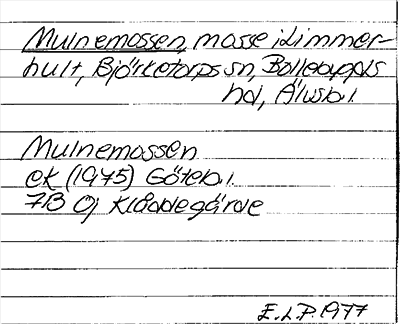 Mulnemossen, mosse i Limmer-
hult, Björketorps sn, Bollebygds
hd, Älvsb.l.
Mulnemossen
ek (1975) Göteb.l.
7B 0j Klåddegärde
E.L.P. 1977